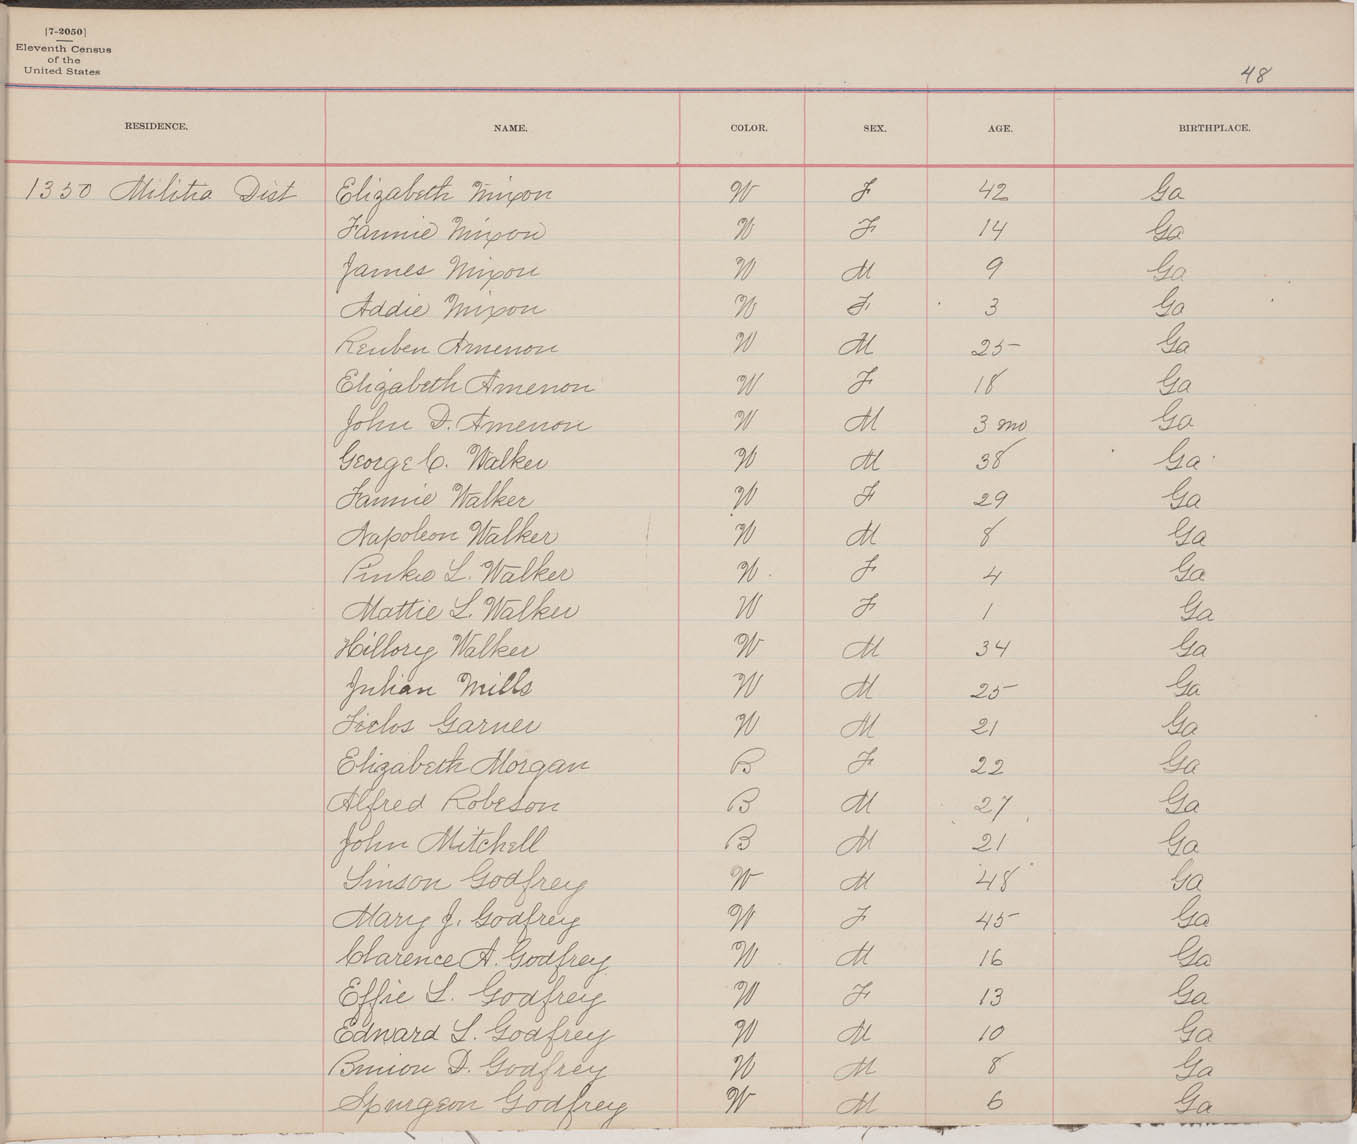 [7-2050]
Eleventh Census
of the
United States
48
RESIDENCE. NAME. COLOR. SEX. AGE. BIRTHPLACE.
1350 Militia Dist Elizabeth Mixon W F 42 Ga
Fannie Mixon W F 14 Ga
James Mixon W M 9 Ga
Addie Mixon W F 3 Ga
Reuben Amenon W M 25 Ga
Elizabeth Amenon W F 18 Ga
John D. Amenon W M 3 mo Ga
George C. Walker W M 38 Ga
Fannie Walker W F 29 Ga
Napoleon Walker W M 8 Ga
Pinkie L. Walker W F 4 Ga
Mattie L. Walker W F 1 Ga
Hillory Walker W M 34 Ga
Julian Mills W M 25 Ga
Garner W M 21 Ga
Elizabeth Morgan B F 22 Ga
Alfred Robeson B M 27 Ga
John Mitchell B M 21 Ga
Godfrey W M 48 Ga
Mary J. Godfrey W F 45 Ga
Clarence A. Godfrey W M 16 Ga
Effie L. Godfrey W F 13 Ga
Edward L. Godfrey W M 10 Ga
Binion D. Godfrey W M 8 Ga
Spurgeon Godfrey W M 6 Ga